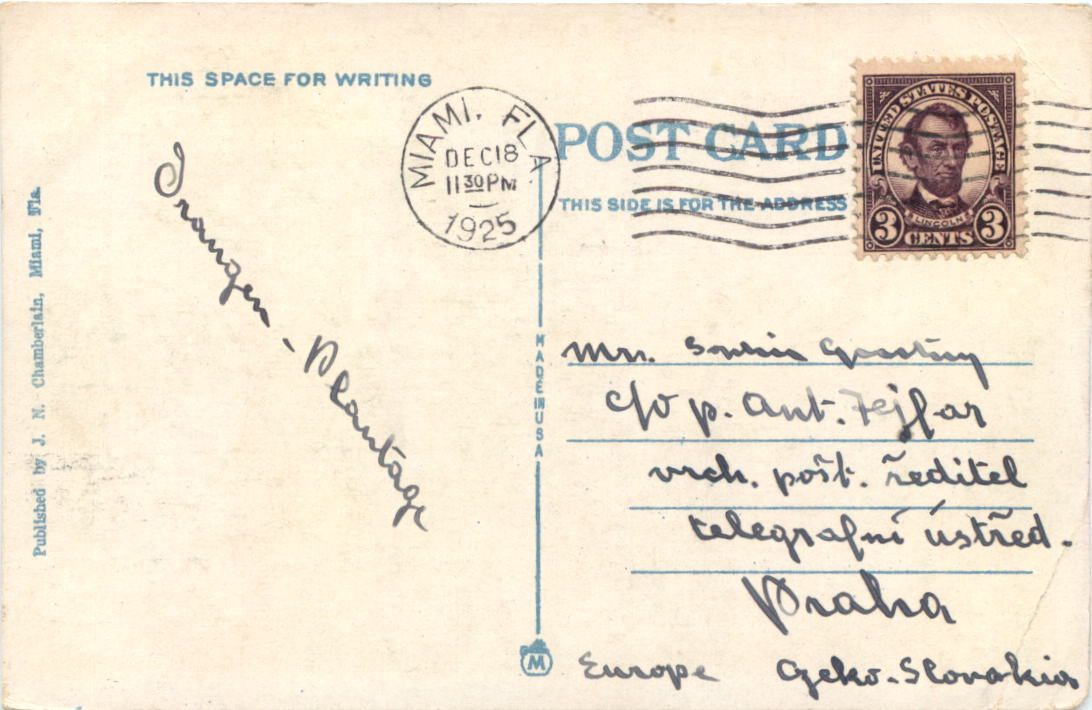 THIS SPACE FOR WRITING
MIAMI, FLA
DEC 18
11 30 PM
1925
POST CARD
THIS SIDE IS FOR THE ADDRESS
UNITED STATES POSTAGE
LINCOLN
3 CENTS 3
Published by J. N. Chamberlain, Miami, Fla.
Orangen-Plantage
MADE IN USA
M
Mrs.
c/o p. Ant. Fejfar
vrch. pošt. ředitel
telegrafní ústřed.
Praha
Europe Czeko-Slovakia